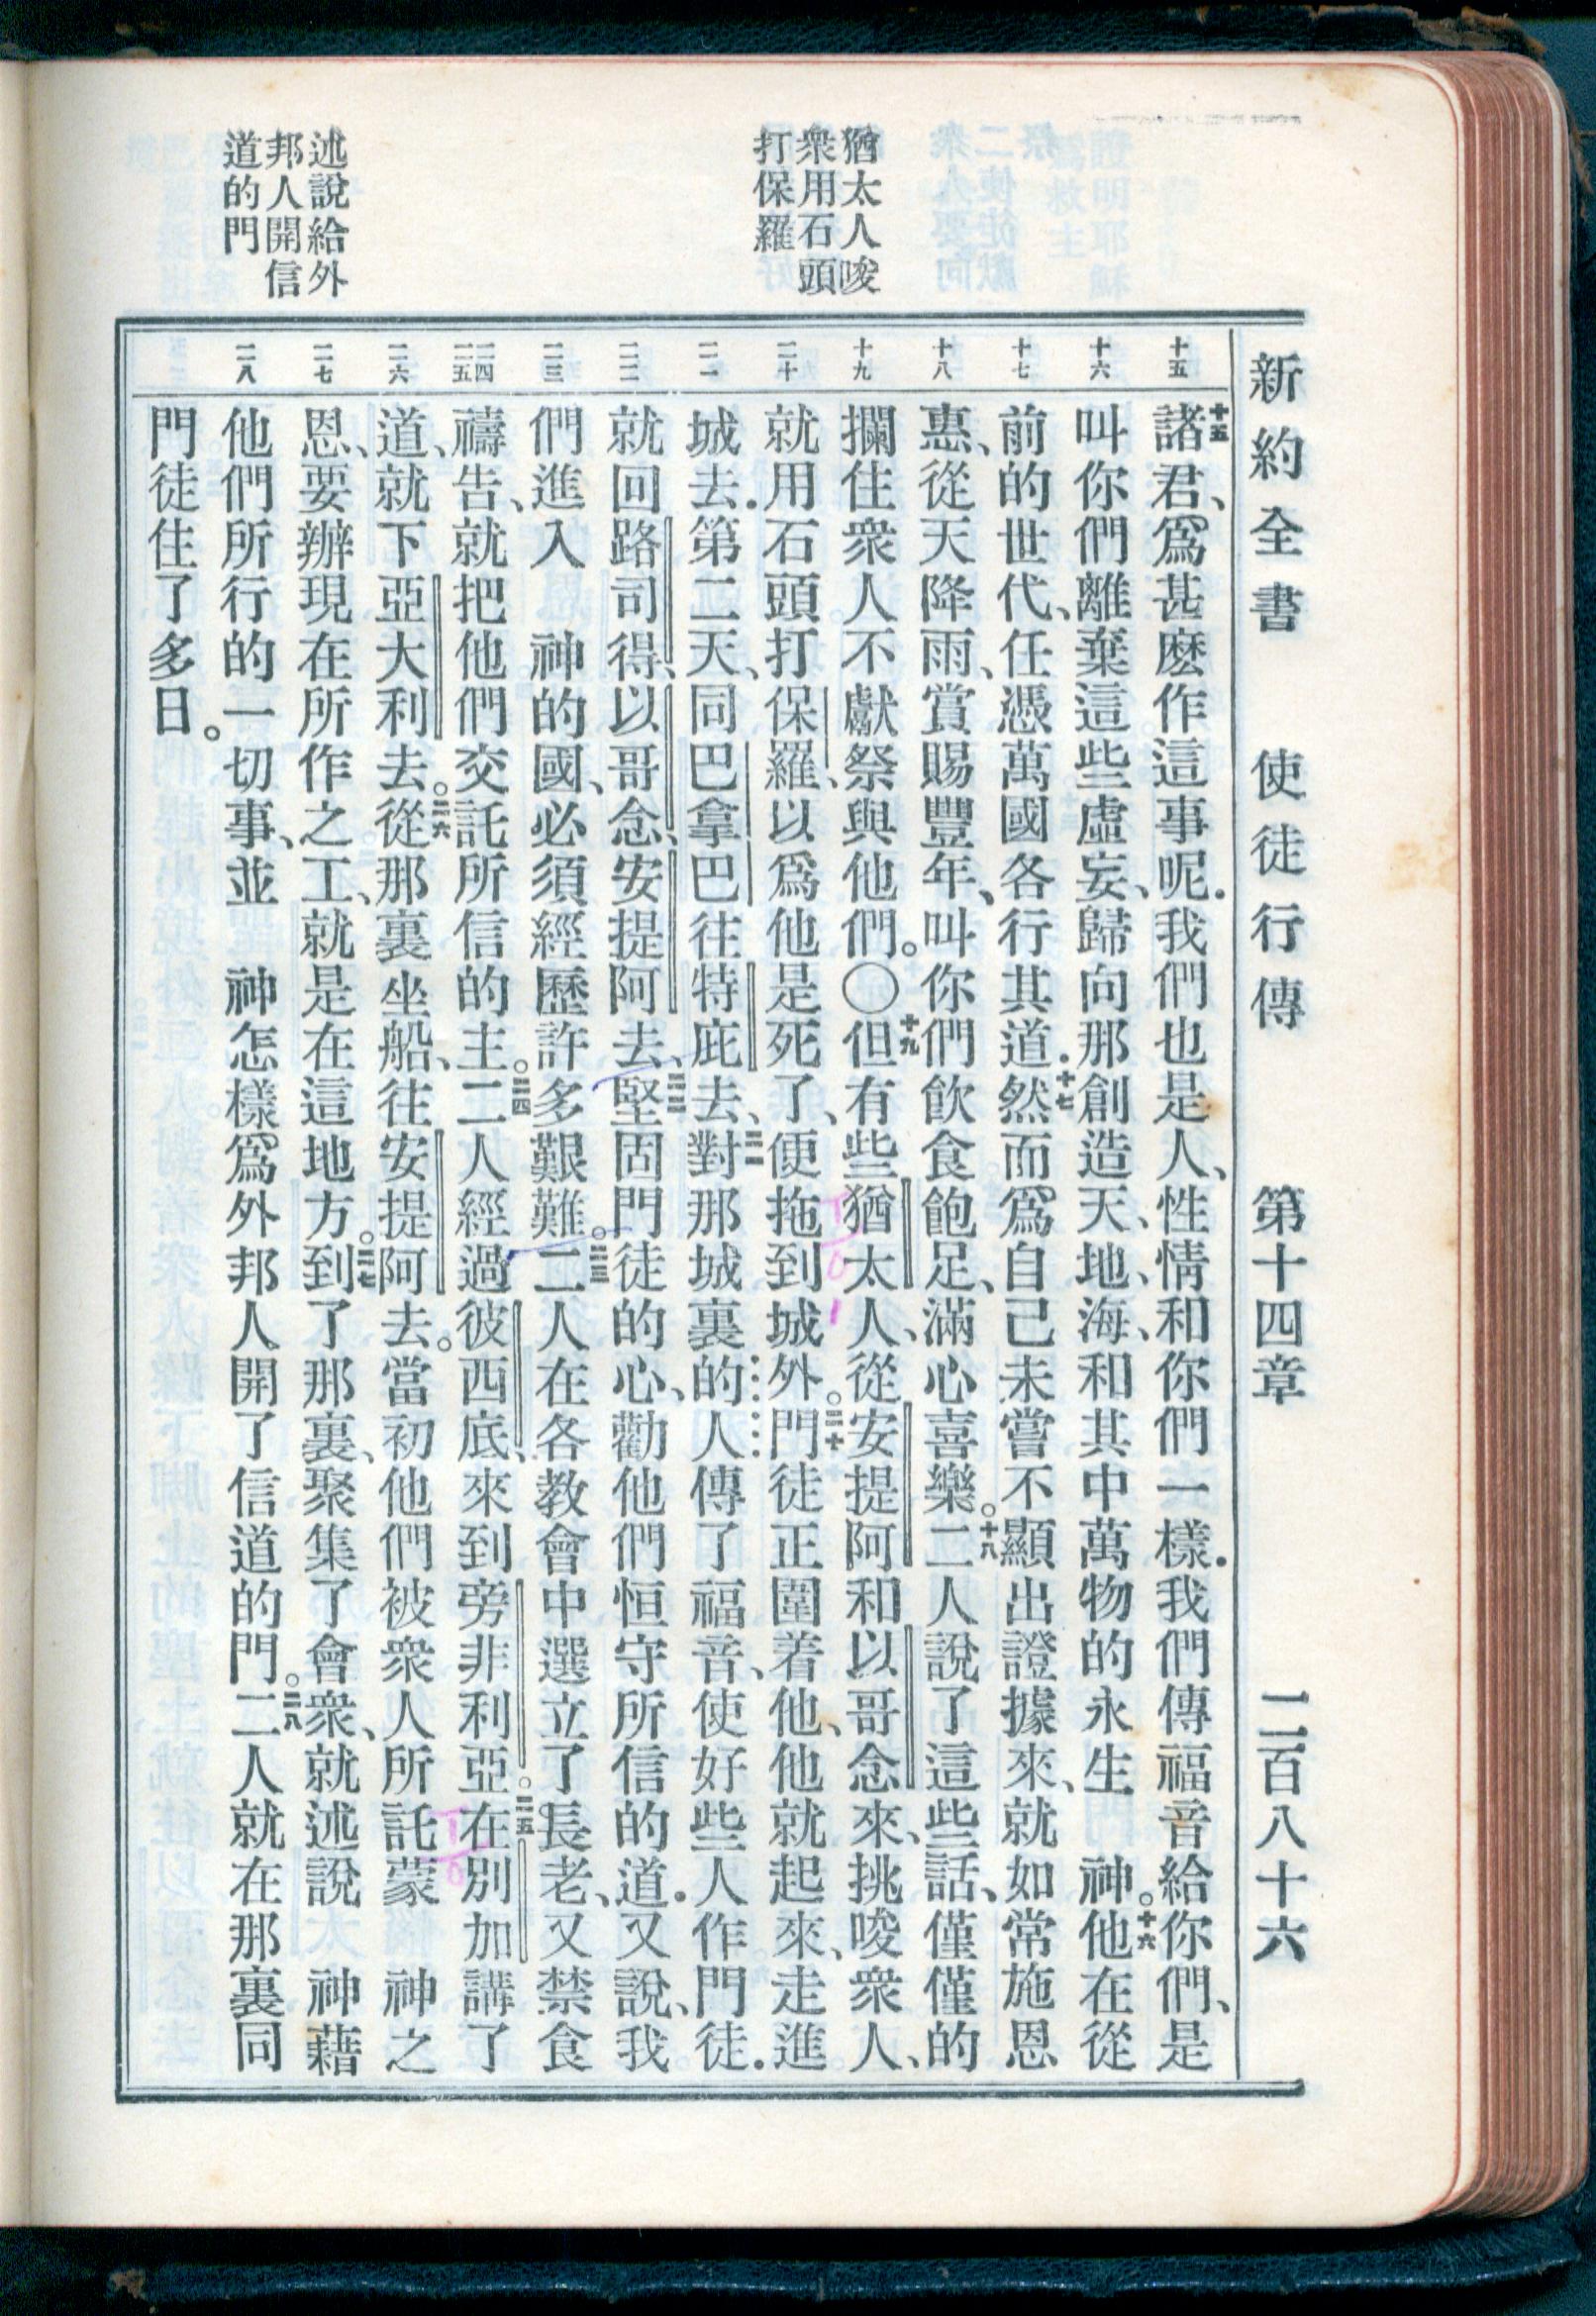 新約全書 使徒行傳 第十四章 二百八十六
猶太人唆
衆用石頭
打保羅
述說給外
邦人開信
道的門
十五
十六
十七
十八
十九
二十
二一
二二
二三
二四
二五
二六
二七
二八
十五諸君、爲甚麽作這事呢.我們也是人、性情和你們一樣.我們傳福音給你們、是
叫你們離棄這些虛妄、歸向那創造天、地、海、和其中萬物的永生 神。十六他在從
前的世代、任憑萬國各行其道.十七然而爲自己未嘗不顯出證據來、就如常施恩
惠、從天降雨、賞賜豐年、叫你們飲食飽足、滿心喜樂。十八二人說了這些話、僅僅的
攔住衆人不獻祭與他們。〇十九但有些猶太人、從安提阿和以哥念來、挑唆衆人、
就用石頭打保羅、以爲他是死了、便拖到城外。二十門徒正圍着他、他就起來、走進
城去.第二天、同巴拿巴往特庇去、二一對那城裏的人傳了福音、使好些人作門徒.
就回路司得、以哥念、安提阿去、二二堅固門徒的心、勸他們恒守所信的道.又說、我
們進入 神的國、必須經歷許多艱難。二三二人在各教會中選立了長老、又禁食
禱告、就把他們交託所信的主。二四二人經過彼西底、來到旁非利亞。二五在別加講了
道、就下亞大利去。二六從那裏坐船、往安提阿去。當初他們被衆人所託蒙 神之
恩、要辦現在所作之工、就是在這地方。二七到了那裏、聚集了會衆、就述說 神藉
他們所行的一切事、並 神怎樣爲外邦人開了信道的門。二八二人就在那裏同
門徒住了多日。